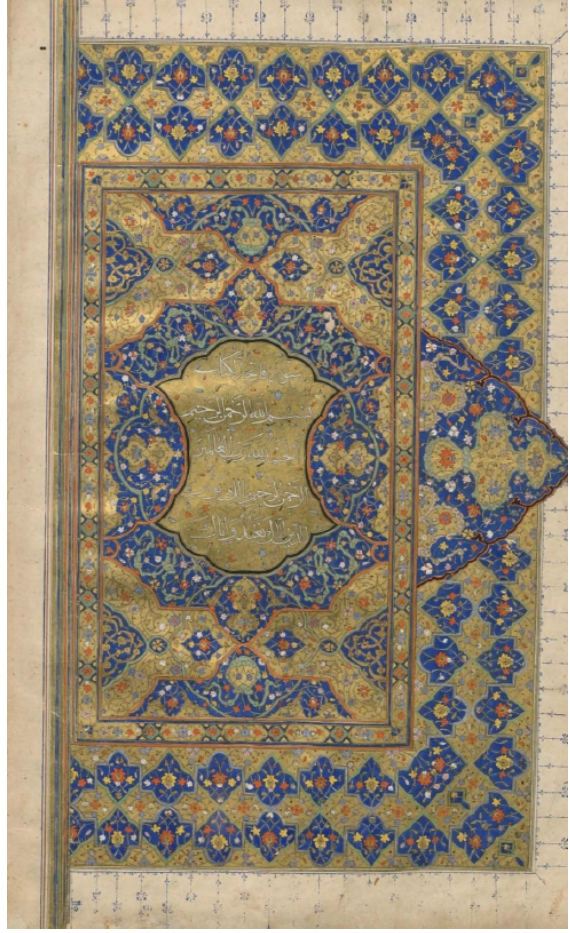 سورة فاتحة الكتاب
بسم الله الرحمن الرحيم
الحمد لله رب العالمين
الرحمن الرحيم ملك يوم
الدين اياك نعبد واياك